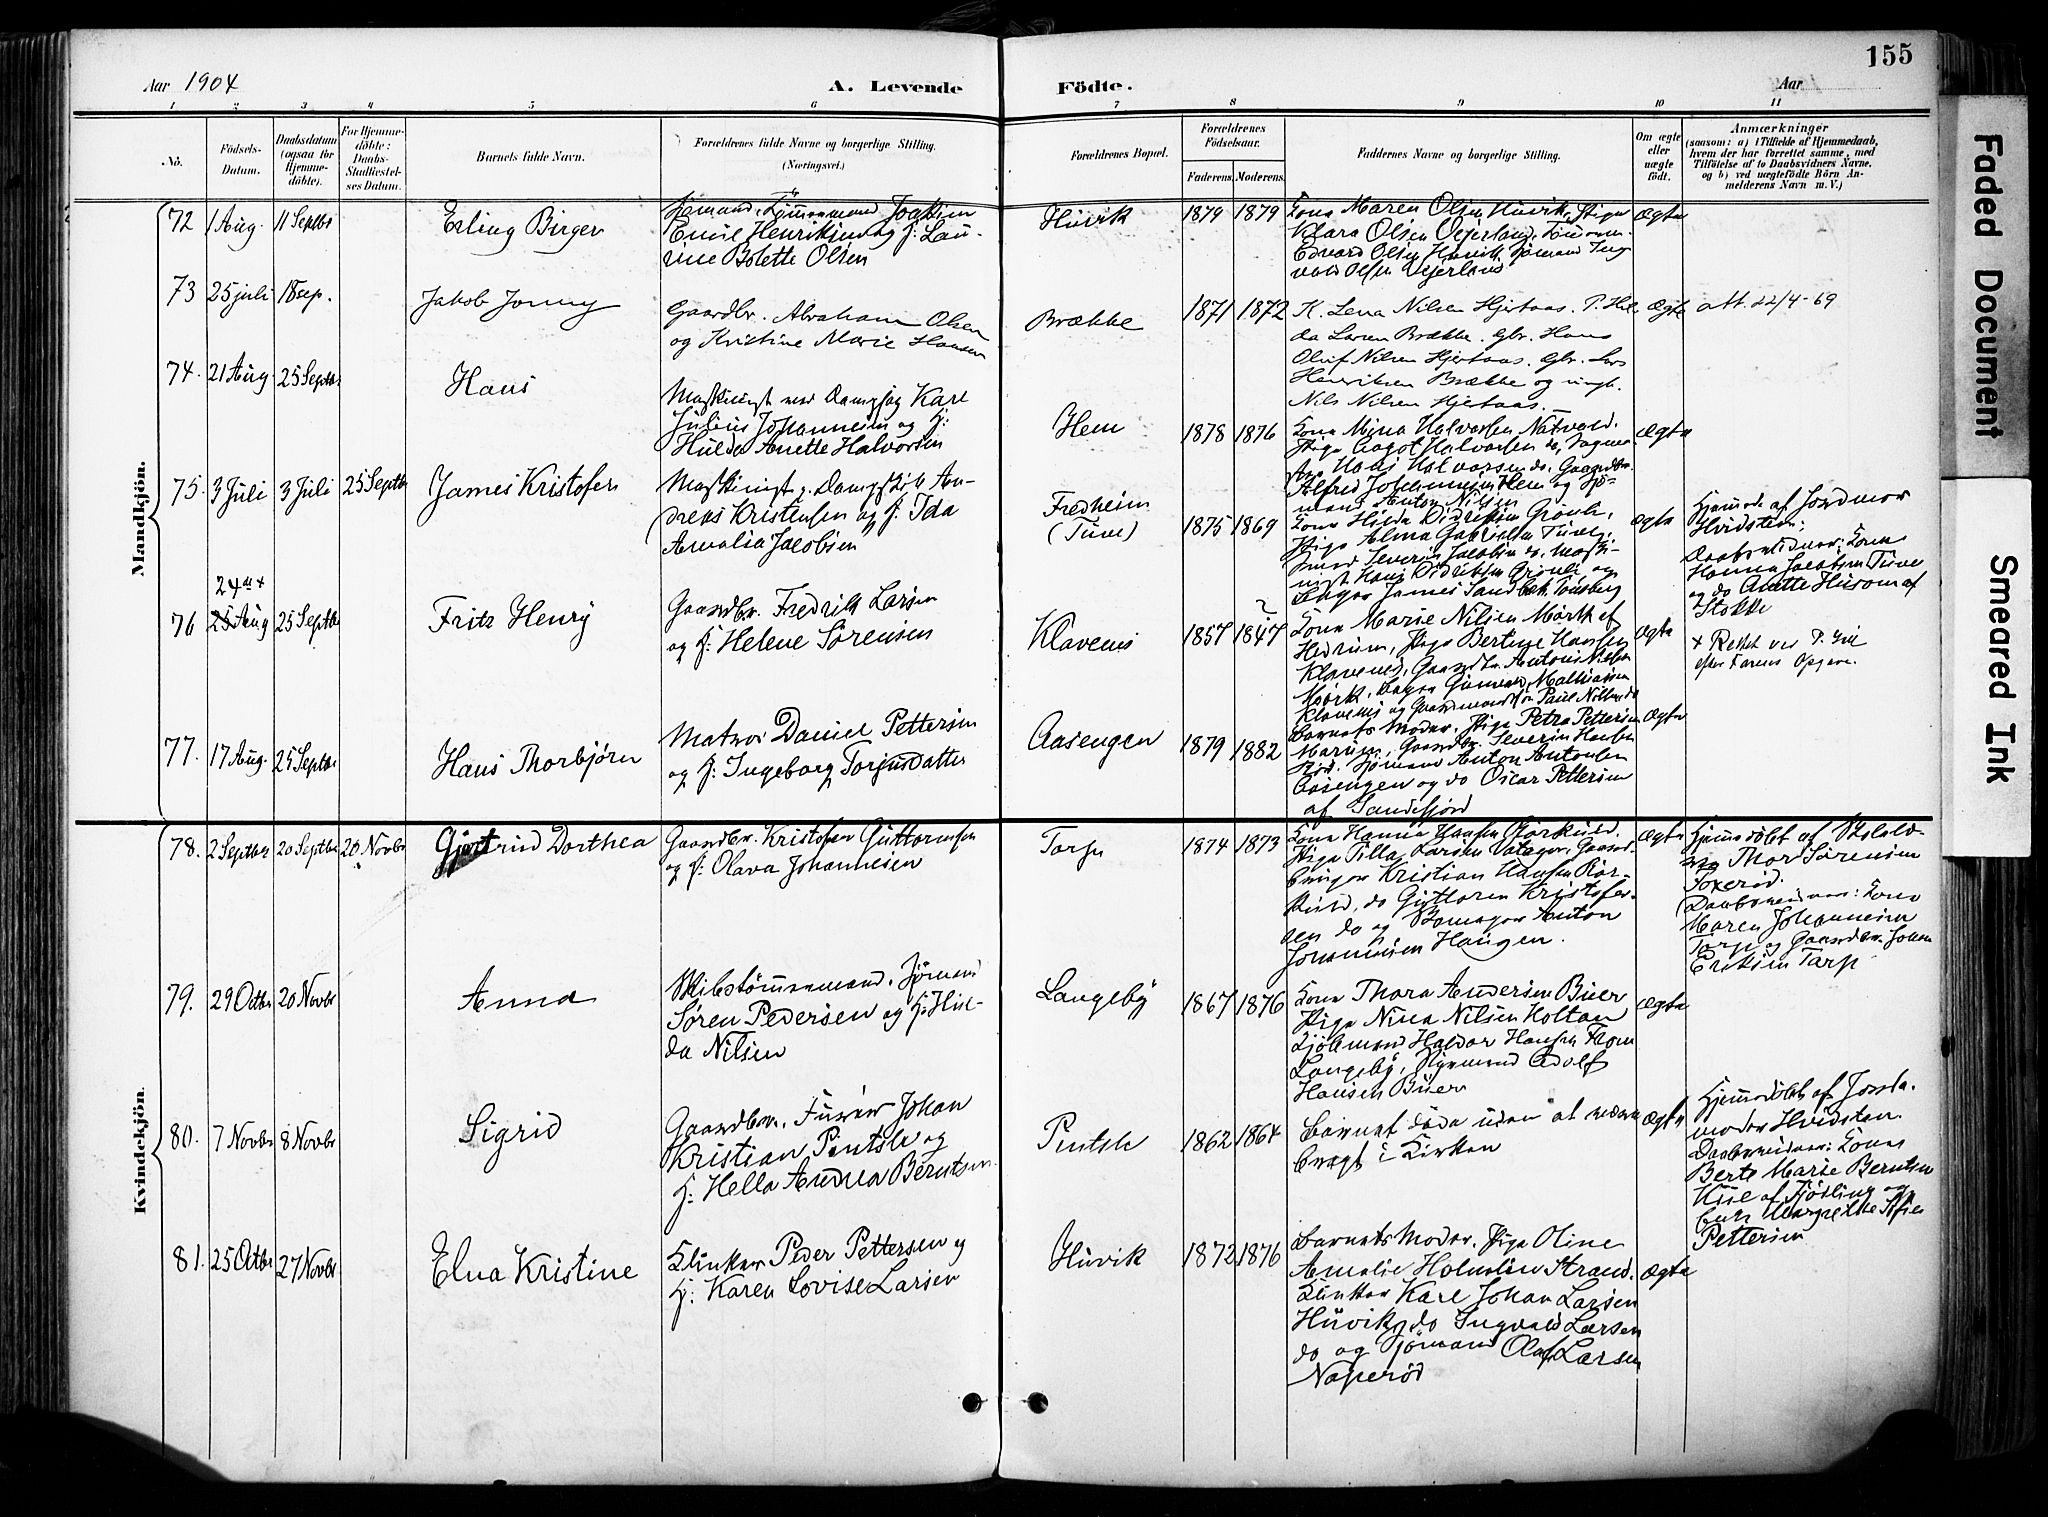 155
Aar 1904
A. Levende
Födte.
Aar
1 2 3 4 5 6 7 8 9 10 11
No.
Födsels-
Datum.
Daabsdatum
(ogsaa for
Hjemme-
döbte).
For Hjemme-
döbte:
Daabs-
Stadfæstel-
ses Datum.
Barnets fulde Navn.
Forældrenes fulde Navne og borgerlige Stilling.
(Næringsvei.)
Forældrenes Bopæl.
Forældrenes
Födselsaar.
Faderens. Moderens.
Faddernes Navne og borgerlige Stilling.
Om ægte
eller
uægte
født.
Anmærkninger
(saasom: a) i Tilfælde af Hjemmedaab,
hvem der har forrettet samme, med
Tilføielse af to Daabsvidners Navne.
og b) ved uægtefödte Börn An-
melderens Navn m. V.)
Mandkjön.
72 1 Aug. 11 Septbr
Erling Birger
Sømand, Tømmermand Joakim
Emil Henriksen og H: Lau-
rine Bolette Olsen
Huvik
1879 1879
Kona Maren Olsen Huvik, Piga
Klara Olsen Vejerland,
Edvard Olsen Huvik, Sømand Ing
vald Olsen Vejerland
Ægte
73 25 juli 18 sep.
Jakob Jonny
Gaardbr. Abraham Olsen
og Kristine Marie Hansen
Brække
1871 1872
K. Lena Nilsen Hjertaas. P. Hil
da Larsen Brække. Gbr. Hans
Oluf Nilsen Hjertaas. Gbr. Lars
Henriksen Brække og ungk.
Nils Nilsen Hjertaas.
Ægte
att. 22/4-69
74. 21 Aug. 25 Septbr
Hans
Maskinist ved Dampsag Karl
Julius Johannesen og H:
Hulda Anette Halvorsen
Hem
1878 1876
Kona Mina Halvorsen Natvold.
Piga Aagot Halvorsen do,
Hans Halvorsen do. Gaardbr.
Alfred Johannesen Hem og Sø-
mand Anton Nilsen
Ægte
75. 3 Juli 3 Juli 25 Septbr
James Kristofer
Maskinist p. Dampskib An-
dreas Kristensen og H. Ida
Amalia Jacobsen
Fredheim
(Tuve)
1875 1869
Kona Hilda Didriksen Grövle,
Piga Alma Gabrielsen Tuve,
Smed Severin Jacobsen do, Maski-
nist Hans Didriksen Grövle og
Bager James Sandbæk Tønsberg
Ægte
Hjemmed. af Jordmor
Hvidsten;
Daabsvidner: Kona
Hanna Jacobsen Tuve
og do Anette Husom af
Stokke
24de +
76 25 Aug 25 Septbr
Fritz Henry
Gaardbr. Fredrik Larsen
og H: Helene Sørensen
Klavenis
1857 1847
Kona Marie Nilsen Mørk af
Hedrum, Piga Bertine Hansen
Klavenes, Gaardbr. Antonis Nilsen
Mørk, Bager Gunerius Mathiasen
Klavenes og Gaardmandssøn Paul Nilsen do
Ægte
+ Rettet ved
efter Farens Opgave.
77. 17 Aug. 25 Septbr
Hans Thorbjörn
Matros Daniel Pettersen
og H: Ingeborg Torjusdatter
Aasengen
1879 1882
Barnets Moder, Piga Petra Pettersen
Marum, Gaardbr. Severin Hansen
Sømand Anton Antonsen
Aasengen og do Oscar Pettersen
af Sandefjord
Ægte
Kvindekjön.
78. 2 Septbr 20 Septbr 20 Novbr
Gjertrud Dorthea
Gaardbr. Kristofer Guttormsen
og H: Olava Johannesen
Torp
1874 1873
Kona Hanna Hansen Rørkuld.
Piga Tilla Larsen Vatager, Gaard-
bruger Kristian Hansen Rør-
kuld, do Guttorm Kristofer-
sen do og Anton
Johannesen Haugen.
Ægte
Hjemmedøbt af
Thor Sørensen
Foxerød.
Daabsvidner: Kona
Maren Johannesen
Torp og Gaardbr. Johan
Eriksen Torp
79. 29 Octbr 20 Novbr
Anna
Skibstømmermand, Sømand
Søren Pedersen og H: Hil-
da Nilsen
Langeby
1867 1876
Kona Thora Andersen Buer
Piga Nina Nilsen Holtan
Haldor Hansen
Langeby, Adolf
Hansen Buer
Ægte
80. 7 Novbr 8 Novbr
Sigrid
Gaardbr. Furér Johan
Kristian Pintsle og
H: Hella Andrea Berntsen
Pintsle
1862 1864
Barnet døde uden at være
bragt i Kirken
Ægte
Hjemmedøbt af Jorde-
moder Hvidsten.
Daabsvidner: Kona
Berte Marie Berntsen
Hise af Tjølling og
Enke Margrethe Sofie
Pettersen
81. 25 Octbr 27 Novbr
Elna Kristine
Klinker Peder Pettersen og
H: Karen Lovise Larsen
Huvik
1872 1876
Barnets Moder. Piga Oline
Amalie Holmsen Strand.
Klinker Karl Johan Larsen
Huvik, do Ingvald Larsen
do og Sømand Olaf Larsen
Naperød
Ægte
Faded Document
Smeared Ink